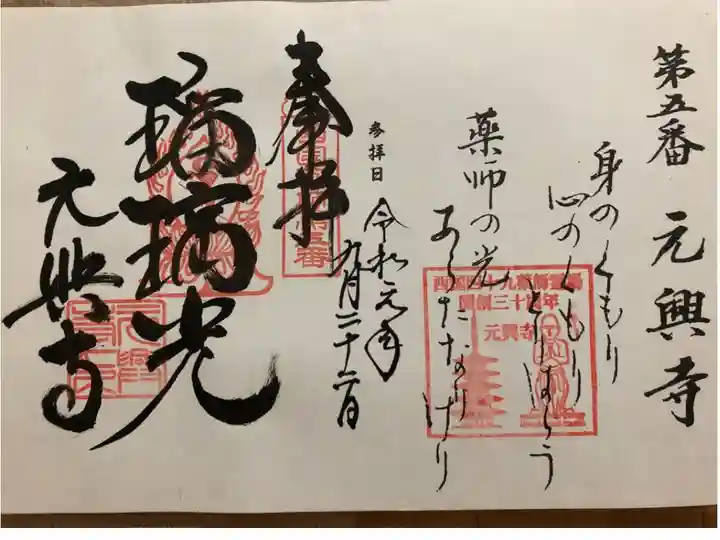 第五番 元興寺
身のくもり
心のくもり
とりはらう
薬師の光
あらたなりけり
西国四十九薬師霊場
開創三十周年
元興寺
参拝日
令和元年
九月二十二日
奉拝
瑠璃光
元興寺